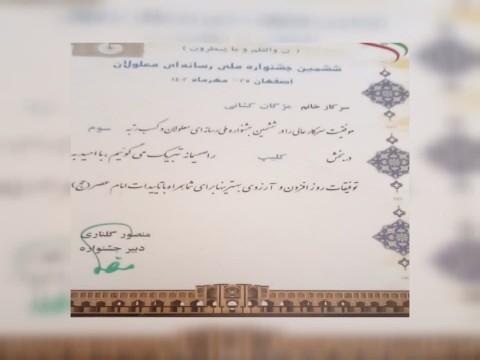 ( ن والقلم و ما یسطرون )
ششمین جشنواره ملی رسانه‌ای معلولان
اصفهان ۲۵ مهرماه ۱۴۰۲
سرکار خانم مژگان کنانی
موفقیت سرکار عالی را در ششمین جشنواره ملی رسانه‌ای معلولان و کسب رتبه سوم
در بخش کلیپ را صمیمانه تبریک می‌گوئیم. با امید به
توفیقات روز افزون و آرزوی بهترین‌ها برای شما همراه با تاییدات امام عصر (عج)
منصور گلناری
دبیر جشنواره